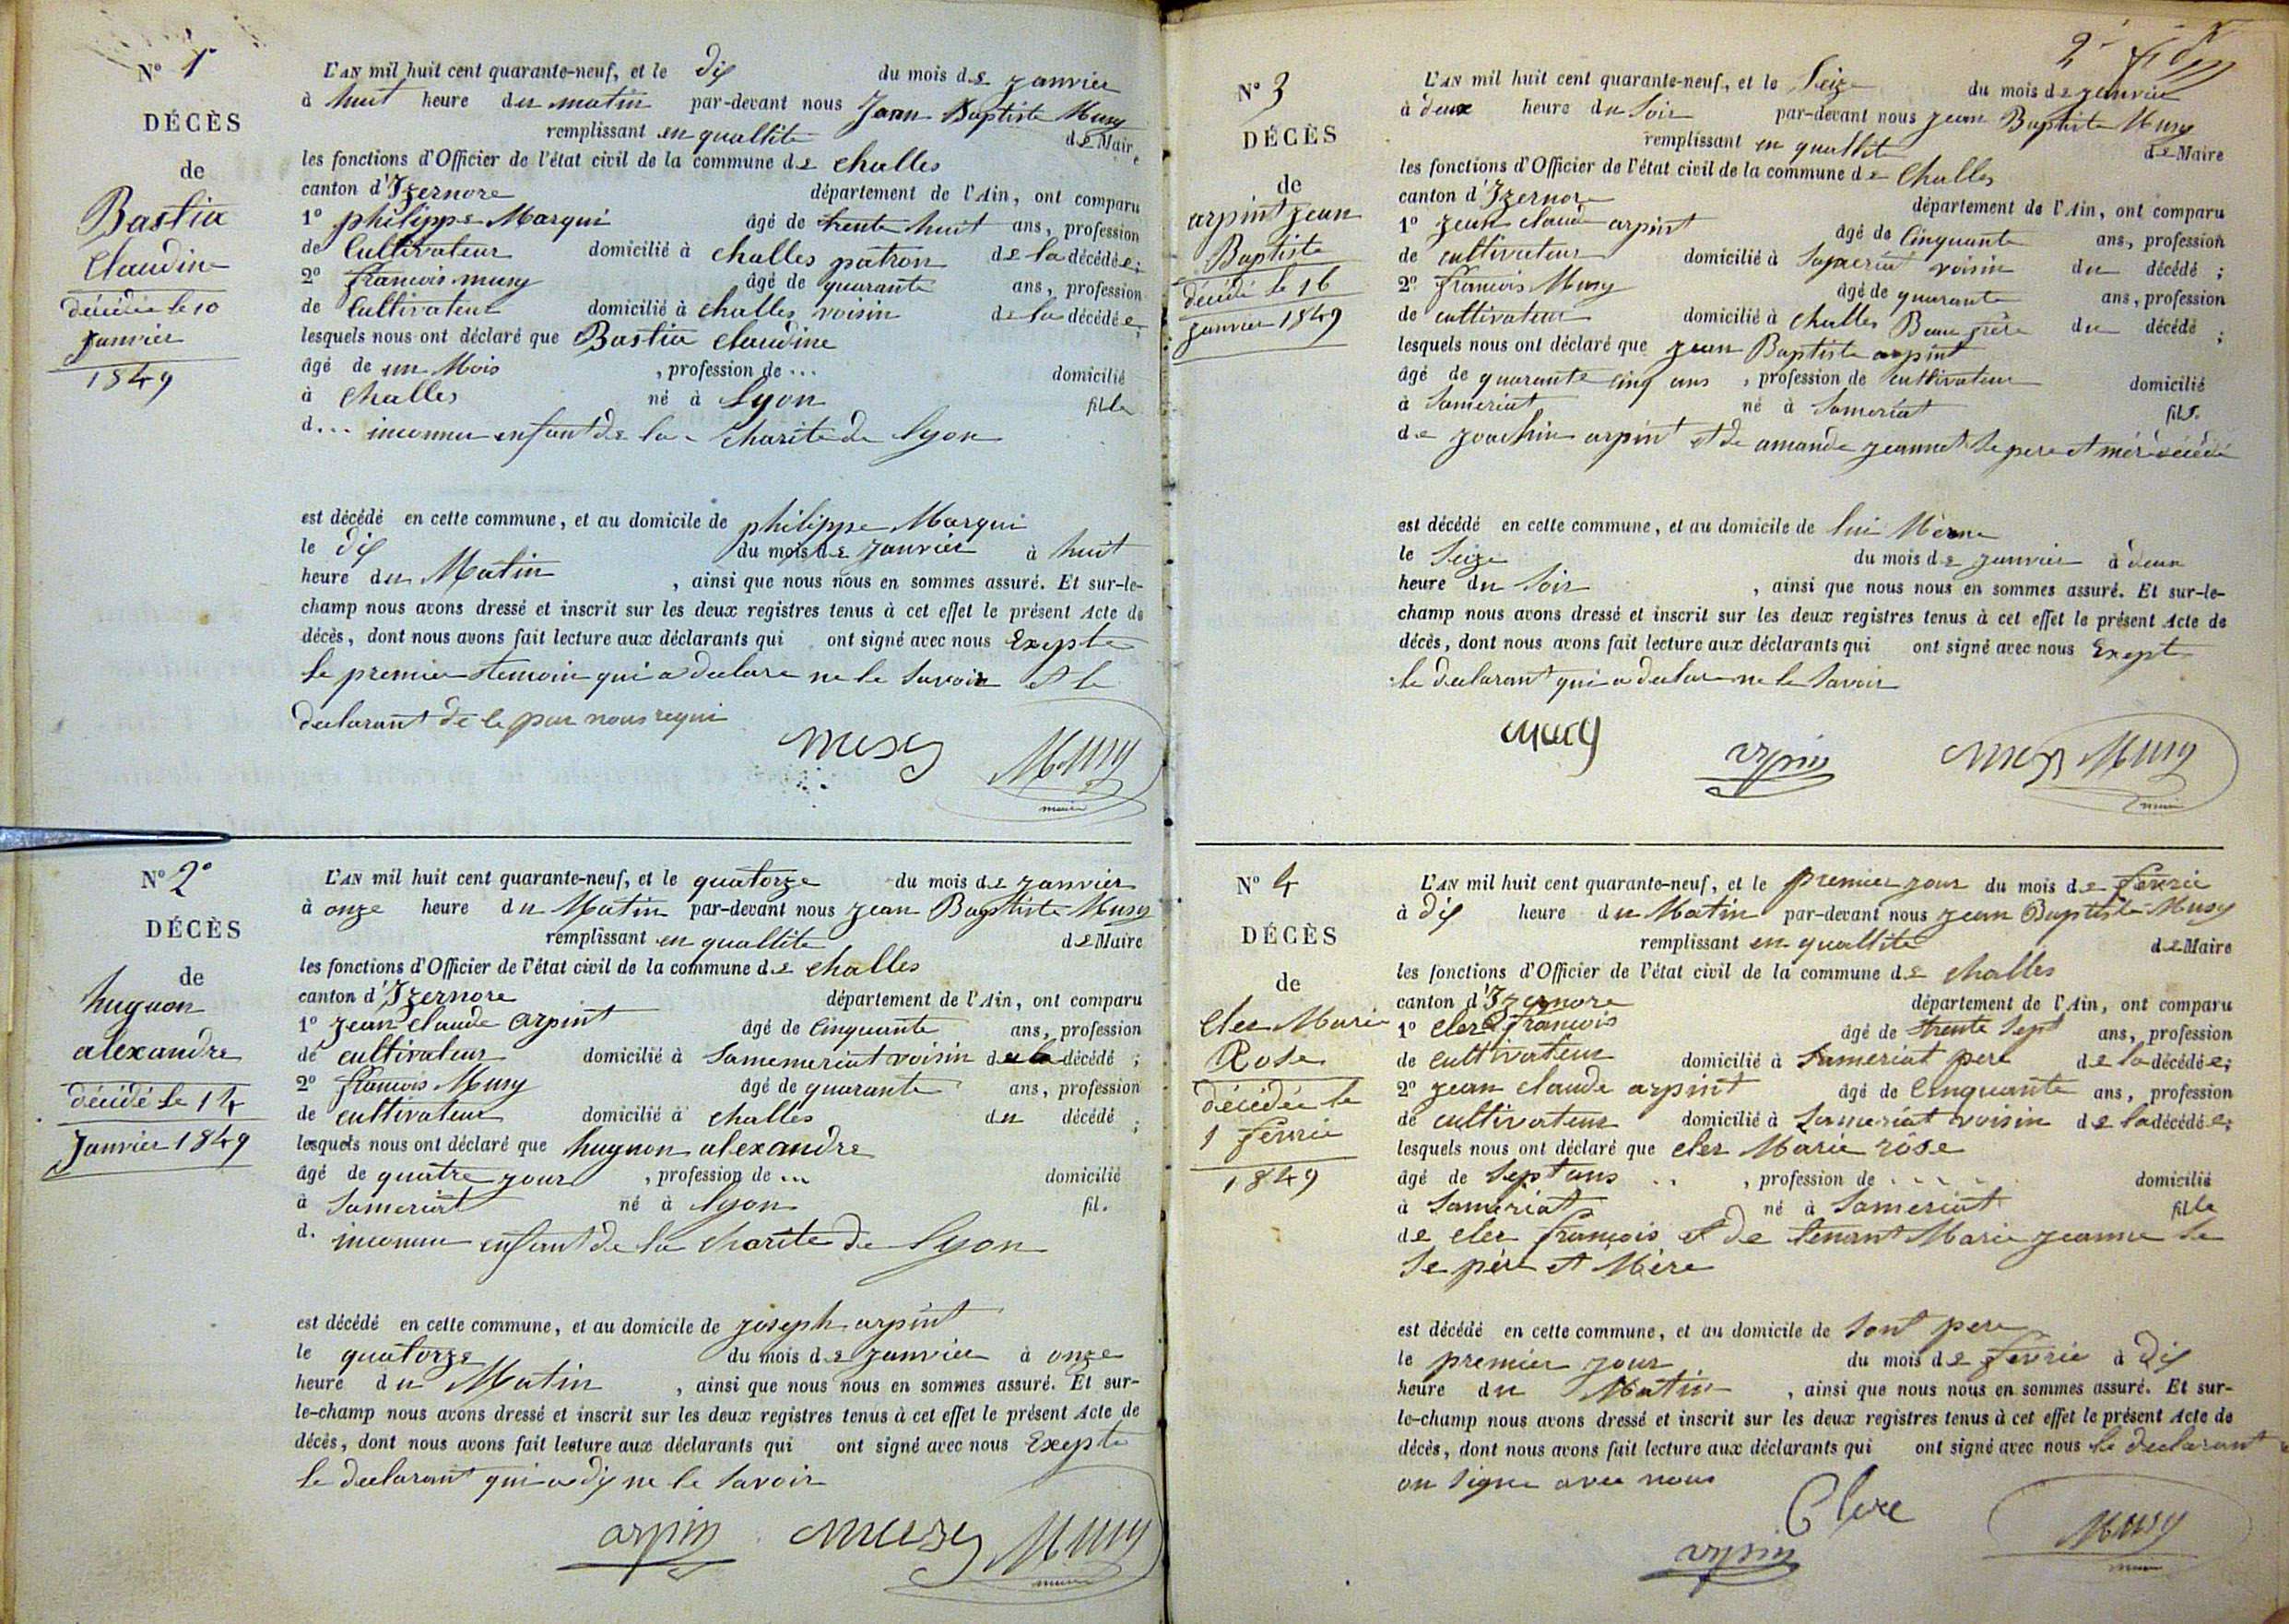 N° 1
DÉCÈS
de
Bastia
Claudine
décédée le 10
Janvier
1849
L'AN mil huit cent quarante-neuf, et le dix du mois de janvier
à huit heure du matin par-devant nous Jean Baptiste Musy
remplissant en quallité de Maire
les fonctions d'Officier de l'état civil de la commune de challes
canton d'Izernore département de l'Ain, ont comparu
1° philippe Marqui âgé de trente huit ans, profession
de Cultivateur domicilié à challes patron de la décédée;
2° francois musy âgé de quarante ans, profession
de Cultivateur domicilié à challes voisin de la décédée;
lesquels nous ont déclaré que Bastia claudine
âgé de un Mois , profession de ... domicilié
à Challes né à Lyon fille
d... inconnu enfant de la Charité de Lyon
est décédé en cette commune, et au domicile de philippe Marqui
le dix du mois de Janvier à huit
heure du Matin , ainsi que nous nous en sommes assuré. Et sur-le-
champ nous avons dressé et inscrit sur les deux registres tenus à cet effet le présent Acte de
décès, dont nous avons fait lecture aux déclarants qui ont signé avec nous Exepte
le premier temoin qui a declare ne le savoir et le
declarant de le par nous requi
musy Musy
maire
N° 2°
DÉCÈS
de
hugnon
alexandre
décédé le 14
Janvier 1849
L'AN mil huit cent quarante-neuf, et le quatorze du mois de janvier
à onze heure du Matin par-devant nous jean Baptiste Musy
remplissant en quallité de Maire
les fonctions d'Officier de l'état civil de la commune de challes
canton d'Izernore département de l'Ain, ont comparu
1° jean claude arpint âgé de Cinquante ans, profession
de cultivateur domicilié à Samemeriat voisin du décédé ;
2° francois Musy âgé de quarante ans, profession
de cultivateur domicilié à challes du décédé ;
lesquels nous ont déclaré que hugnon alexandre
âgé de quatre jour , profession de ... domicilié
à Sameriat né à Lyon fil.
d. inconnu enfant de la charité de Lyon
est décédé en cette commune, et au domicile de joseph arpint
le quatorze du mois de janvier à onze
heure du Matin , ainsi que nous nous en sommes assuré. Et sur-
le-champ nous avons dressé et inscrit sur les deux registres tenus à cet effet le présent Acte de
décès, dont nous avons fait lecture aux déclarants qui ont signé avec nous Exepte
le declarant qui a dy ne le savoir
arpin musy Musy
maire
2e
N° 3
DÉCÈS
de
arpint jean
Baptiste
décédé le 16
janvier 1849
L'AN mil huit cent quarante-neuf, et le Seize du mois de janvier
à deux heure du Soir par-devant nous jean Baptiste Musy
remplissant en quallité de Maire
les fonctions d'Officier de l'état civil de la commune de Challes
canton d'Izernore département de l'Ain, ont comparu
1° jean claude arpint âgé de Cinquante ans, profession
de cultivateur domicilié à Sameriat voisin du décédé ;
2° francois Musy âgé de quarante ans, profession
de cultivateur domicilié à challes Beau frère du décédé ;
lesquels nous ont déclaré que jean Baptiste arpint
âgé de quarante cinq ans , profession de cultivateur domicilié
à Sameriat né à Sameriat fils.
de joachin arpint et de amande jeannet se pere et mère décédé
est décédé en cette commune, et au domicile de lui Meme
le Seize du mois de janvier à deux
heure du Soir , ainsi que nous nous en sommes assuré. Et sur-le-
champ nous avons dressé et inscrit sur les deux registres tenus à cet effet le présent Acte de
décès, dont nous avons fait lecture aux déclarants qui ont signé avec nous Exepte
le declarant qui a declare ne le savoir
arpin musy Musy
maire
N° 4
DÉCÈS
de
Cler Marie
Rose
décédée le
1 fevrie
1849
L'AN mil huit cent quarante-neuf, et le premier jour du mois de fevrie
à dix heure du Matin par-devant nous jean Baptiste Musy
remplissant en quallité de Maire
les fonctions d'Officier de l'état civil de la commune de challes
canton d'Izernore département de l'Ain, ont comparu
1° cler francois âgé de trente sept ans, profession
de cultivateur domicilié à Sameriat pere de la décédée;
2° jean claude arpint âgé de Cinquante ans, profession
de cultivateur domicilié à Sameriat voisin de la décédée;
lesquels nous ont déclaré que cler Marie rose
âgé de Sept ans .. , profession de ..... domicilié
à Sameriat né à Sameriat fille
de cler francois et de tenant Marie jeanne le
se père et Mère
est décédé en cette commune, et au domicile de Sont pere
le premier jour du mois de fevrie à dix
heure du Matin , ainsi que nous nous en sommes assuré. Et sur-
le-champ nous avons dressé et inscrit sur les deux registres tenus à cet effet le présent Acte de
décès, dont nous avons fait lecture aux déclarants qui ont signé avec nous le declarant
on signe avec nous
Clere
arpin Musy
maire